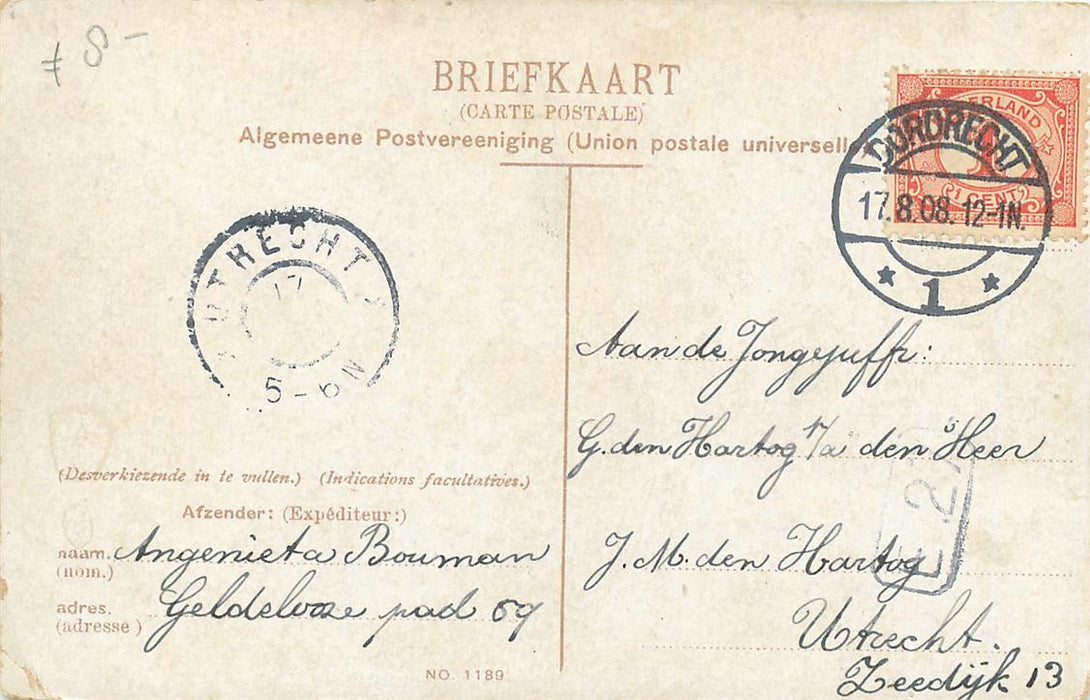 ≠ 8 -
BRIEFKAART
(CARTE POSTALE)
Algemeene Postvereeniging (Union postale universelle
NEDERLAND
1 CENT
DORDRECHT
17.8.08. 12-1N.
* 1 *
UTRECHT
17
5-6N
Aan de Jongejuffr:
G. den Hartog p/a den Heer
J. M. den Hartog
Utrecht.
Zeedijk 13
E 2
(Desverkiezende in te vullen.) (Indications facultatives.)
Afzender: (Expéditeur:)
naam. Angenieta Bouman
(nom.)
adres. Geldeloze pad 69
(adresse)
NO. 1189